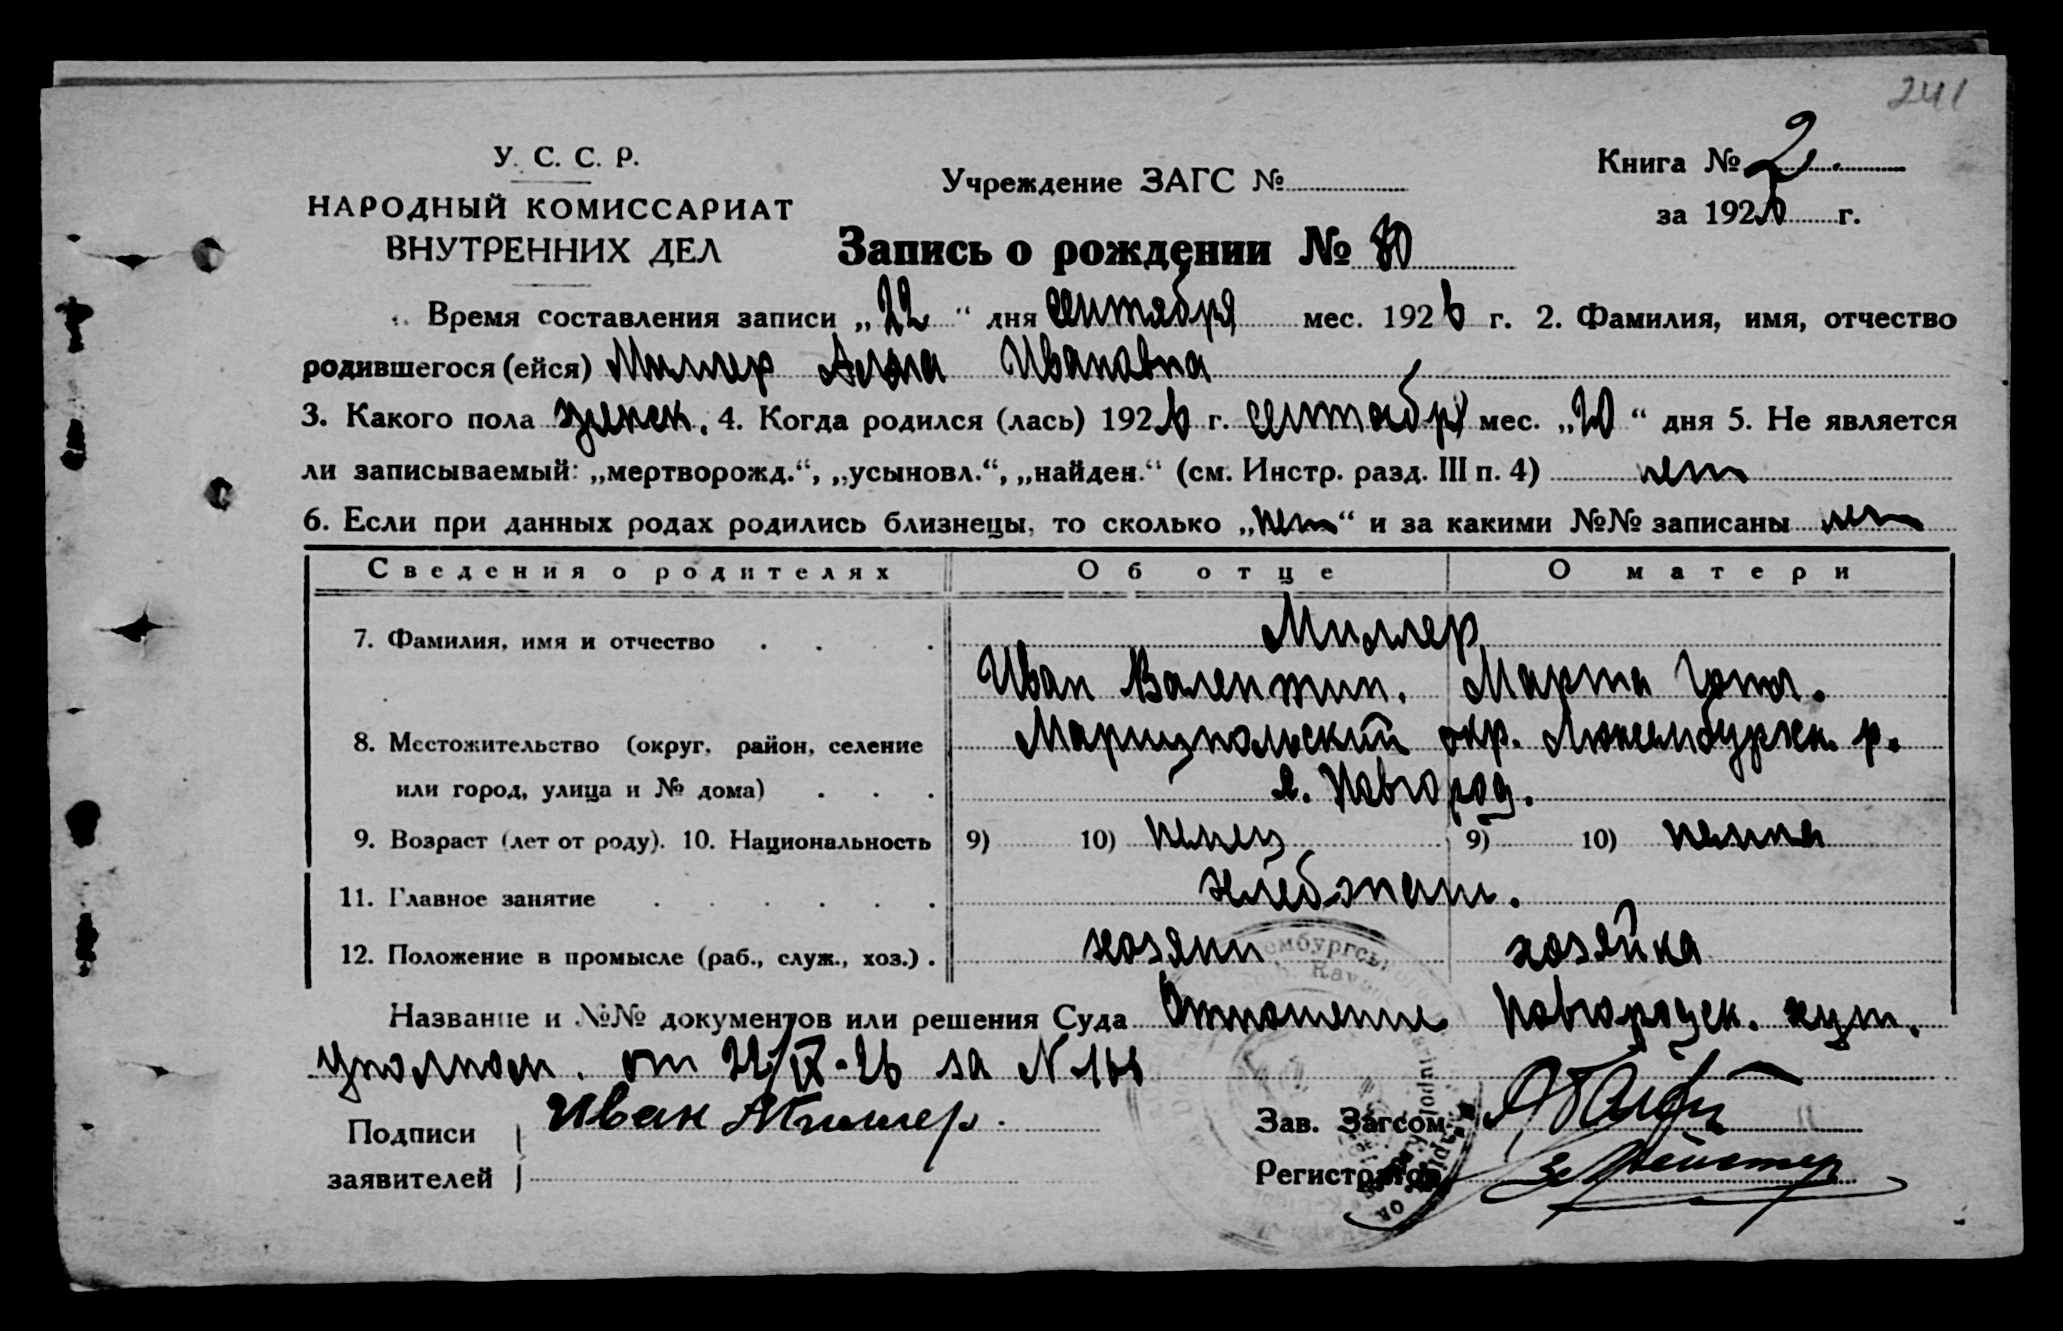 241
У. С. С. Р.
НАРОДНЫЙ КОМИССАРИАТ
ВНУТРЕННИХ ДЕЛ
Учреждение ЗАГС №
Книга № 2
за 1926 г.
Запись о рождении № 80
Время составления записи „22“ дня сентября мес. 1926 г. 2. Фамилия, имя, отчество
родившегося (ейся) Миллер Ивановна
3. Какого пола женск. 4. Когда родился (лась) 1926 г. сентября мес. „20“ дня 5. Не является
ли записываемый: „мертворожд.“, „усыновл.“, „найден.“ (см. Инстр. разд. III п. 4) нет
6. Если при данных родах родились близнецы, то сколько „нет“ и за какими №№ записаны нет
Сведения о родителях Об отце О матери
7. Фамилия, имя и отчество . . . . Миллер
Иван Валентин. Марта
8. Местожительство (округ, район, селение Мариупольский окр. Люксембургск. р.
или город, улица и № дома) . . . Новгород.
9. Возраст (лет от роду). 10. Национальность 9) 10) немец 9) 10) немка
11. Главное занятие . . . . . . хлебопаш.
12. Положение в промысле (раб., служ., хоз.) . хозяин хозяйка
Название и №№ документов или решения Суда Отношение Новгородск. хут.
уполном. от 22/IX-26 за N
Подписи Иван Миллер. Зав. Загсом
заявителей Регистратор